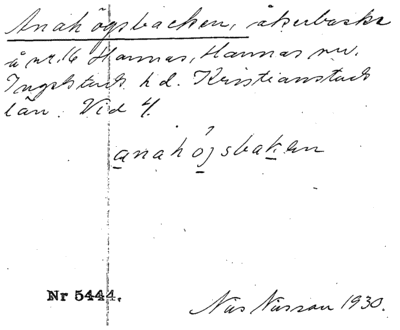 Anahögsbacken, åkerbacke
å nr. 16 Hannas, Hannas sn.
Ingelstads hd. Kristianstads
län. Vid 4.
anahögsbakan
Nr 5444.
Nils Nilsson 1930.